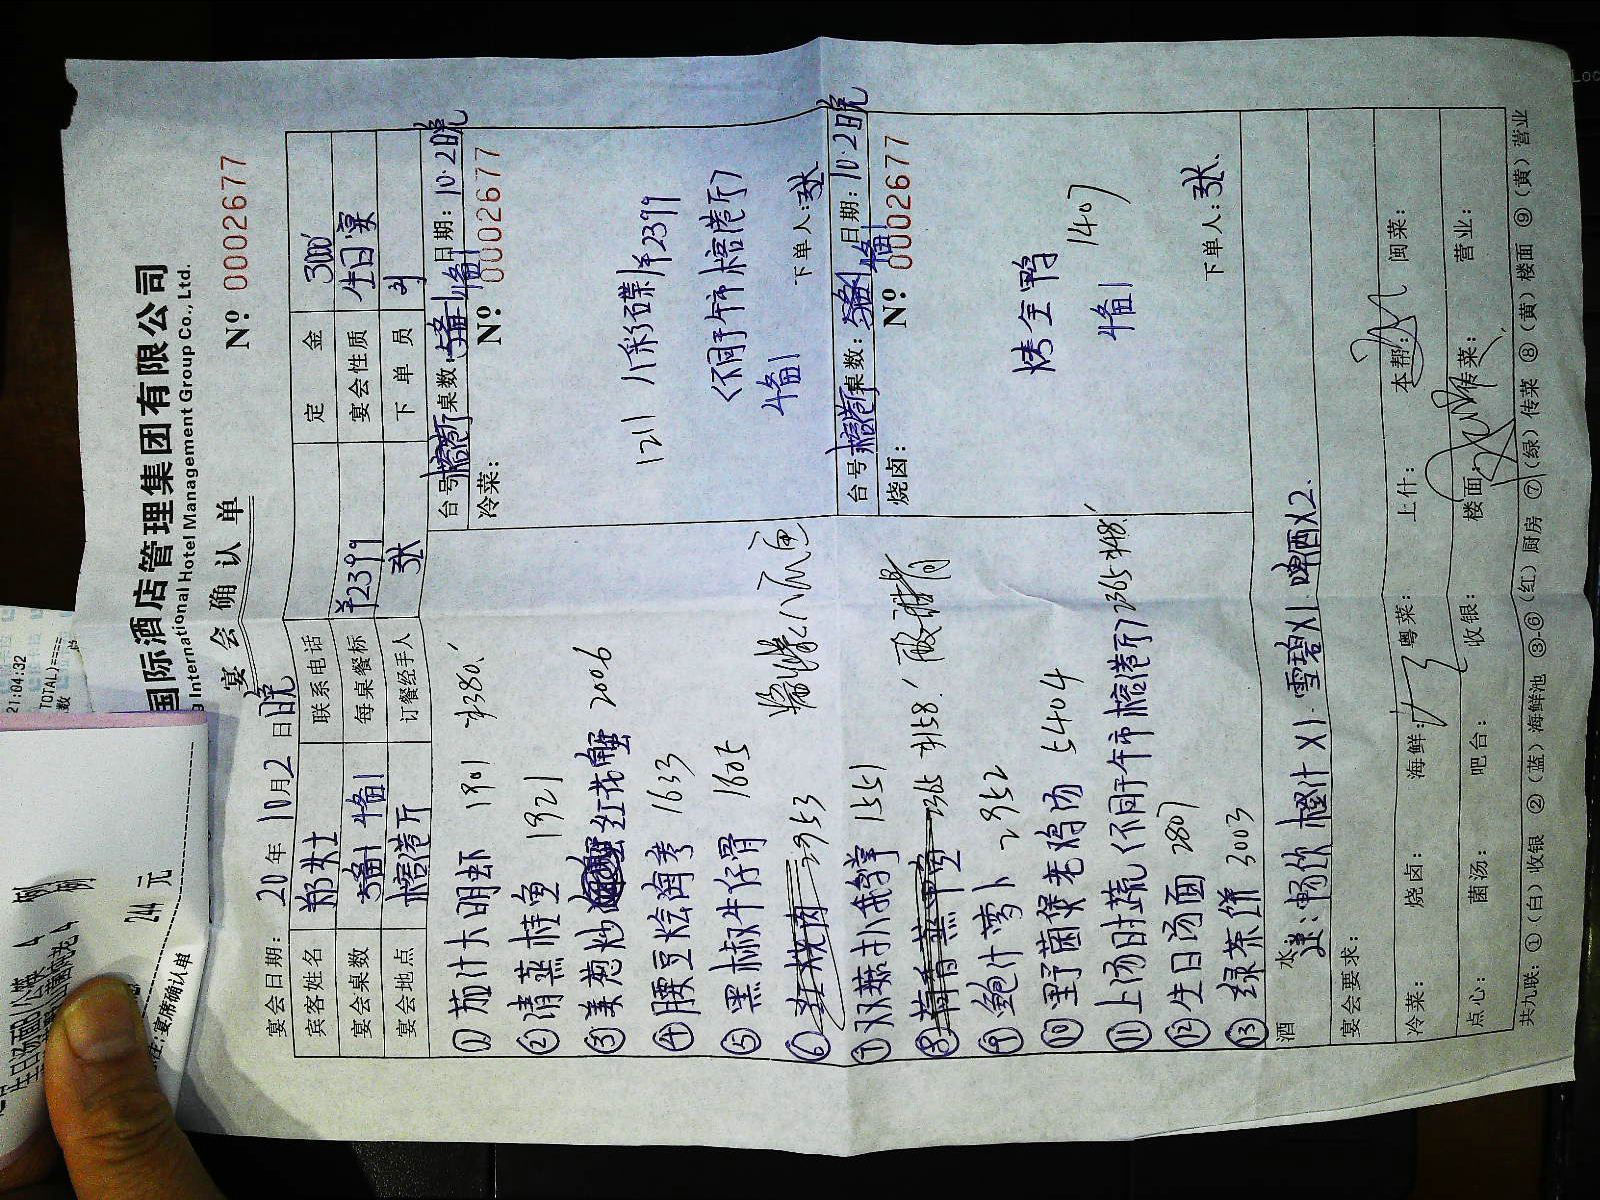 国际酒店管理集团有限公司
International Hotel Management Group Co., Ltd.
宴会确认单
Nº 0002677
宴会日期: 20 年 10 月 2 日 晚
宾客姓名 郑女士 联系电话 定金 3000
宴会桌数 备1 每桌餐标 ¥2399 宴会性质 生日宴
宴会地点 榕港厅 订餐经手人 张 下单员
① 茄汁大明虾 1901 380
② 清蒸桂鱼 1921
③ 姜葱炒红花蟹 2006
④ 腰豆烩海参 1633
⑤ 黑椒牛仔骨 1605
⑥ 红烧肉 2953
⑦ 双菇扒鱼掌 1551
⑧ 2365 158
⑨ 鲍汁萝卜 2952
⑩ 野菌煲老鸡汤 5404
⑪ 上汤时蔬(不同于午市榕港厅) 2365
⑫ 生日汤面 2807
⑬ 绿茶饼 3003
台号 榕港厅 桌数: 备1 日期: 10.2晚
冷菜: Nº 0002677
1211 八彩碟 ¥2399
(不同于午市榕港厅)
备1
下单人: 张
台号 榕港厅 桌数: 备1 日期: 10.2晚
烧卤: Nº 0002677
烤全鸭 1407
备1
下单人: 张
酒水: 畅饮 橙汁X1 雪碧X1 啤酒X2.
宴会要求:
冷菜: 烧卤: 海鲜: 粤菜: 上什: 本帮: 闽菜:
点心: 菌汤: 吧台: 收银: 楼面: 传菜: 营业:
共九联: ①(白)收银 ②(蓝)海鲜池 ③-⑥(红)厨房 ⑦(绿)传菜 ⑧(黄)楼面 ⑨(黄)营业
21:04:32
TOTAL)====
生日汤面 4
244 元
宴席确认单